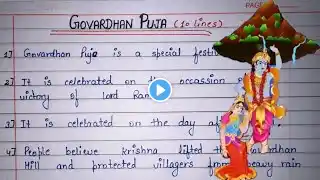 GOVARDHAN PUJA (10 lines)
PAGE
1] Govardhan Puja is a special
2] It is celebrated on occassion
victory of Lord
3] It is celebrated on the day
4] People believe krishna lifted the
Hill and protected villagers from heavy rain